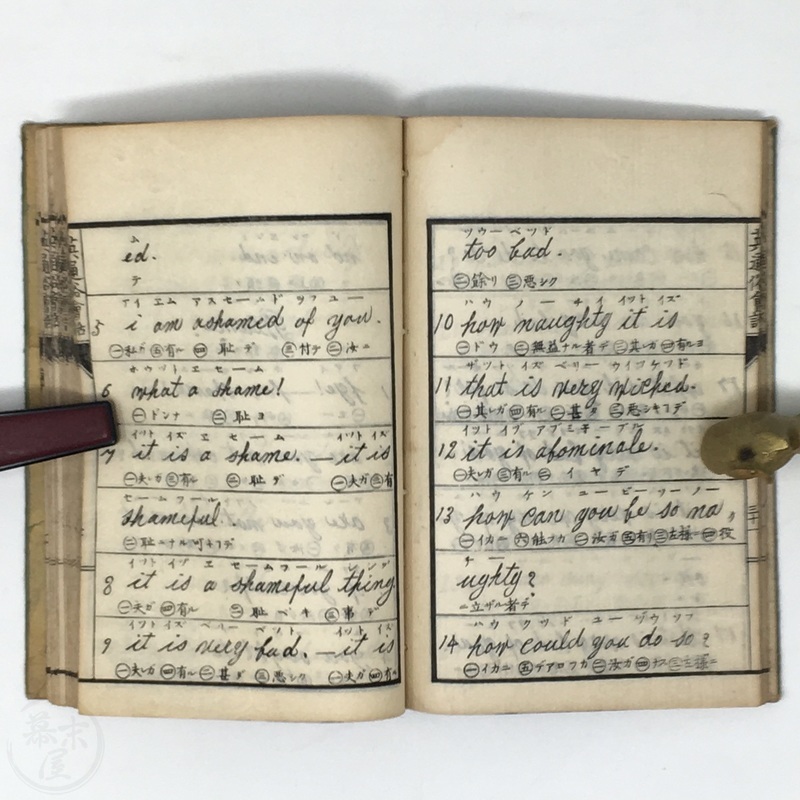 ム
ed.
デ
アイ エム アスセームルド ヲフ ユー
5 i am ashamed of you.
㊀私ガ ㊄有ル ㊃耻デ ㊂付テ ㊁汝ニ
ホウット エ セーム
6 what a shame!
㊀ドンナ ㊁耻ヨ
イツト イズ エ セーム イツト イズ
7 it is a shame. — it is
㊀夫レガ ㊂有ル ㊁耻デ ㊀夫レガ ㊂有
セームフール
shameful.
イツト イズ エ セームフール シング
8 it is a shameful thing.
㊀夫ガ ㊃有ル ㊁耻ベキ ㊂事デ
イツト イズ ベリー ベツド イツト イズ
9 it is very bad. — it is
㊀夫レガ ㊃有ル ㊁甚ダ ㊂悪シク ㊀夫ガ ㊃有ル
ツウー ベツド
too bad.
㊁餘リ ㊂悪シク
ハウ ノーチイ イツト イズ
10 how naughty it is
㊀ドウ ㊁無益ナル者デ ㊂其レガ ㊃有ルヨ
ザツト イズ ベリー ウイツケツド
11 that is very wicked.
㊀其レガ ㊃有ル ㊁甚ダ
イツト イズ アブミネーブル
12 it is abominale.
㊀夫レガ ㊂有ル ㊁イヤデ
ハウ ケン ユー ビー ソー ノー
13 how can you be so na
㊀イカニ ㊅能フカ ㊁汝ガ ㊄有リ ㊂左様ニ
チー
ughty?
立ザル者デ
ハウ クウド ユー ヅウ ソフ
14 how could you do so?
㊀イカニ ㊄デアロフカ ㊁汝ガ ㊃ナス ㊂左様ニ
英通俗會話
三十
幕末屋